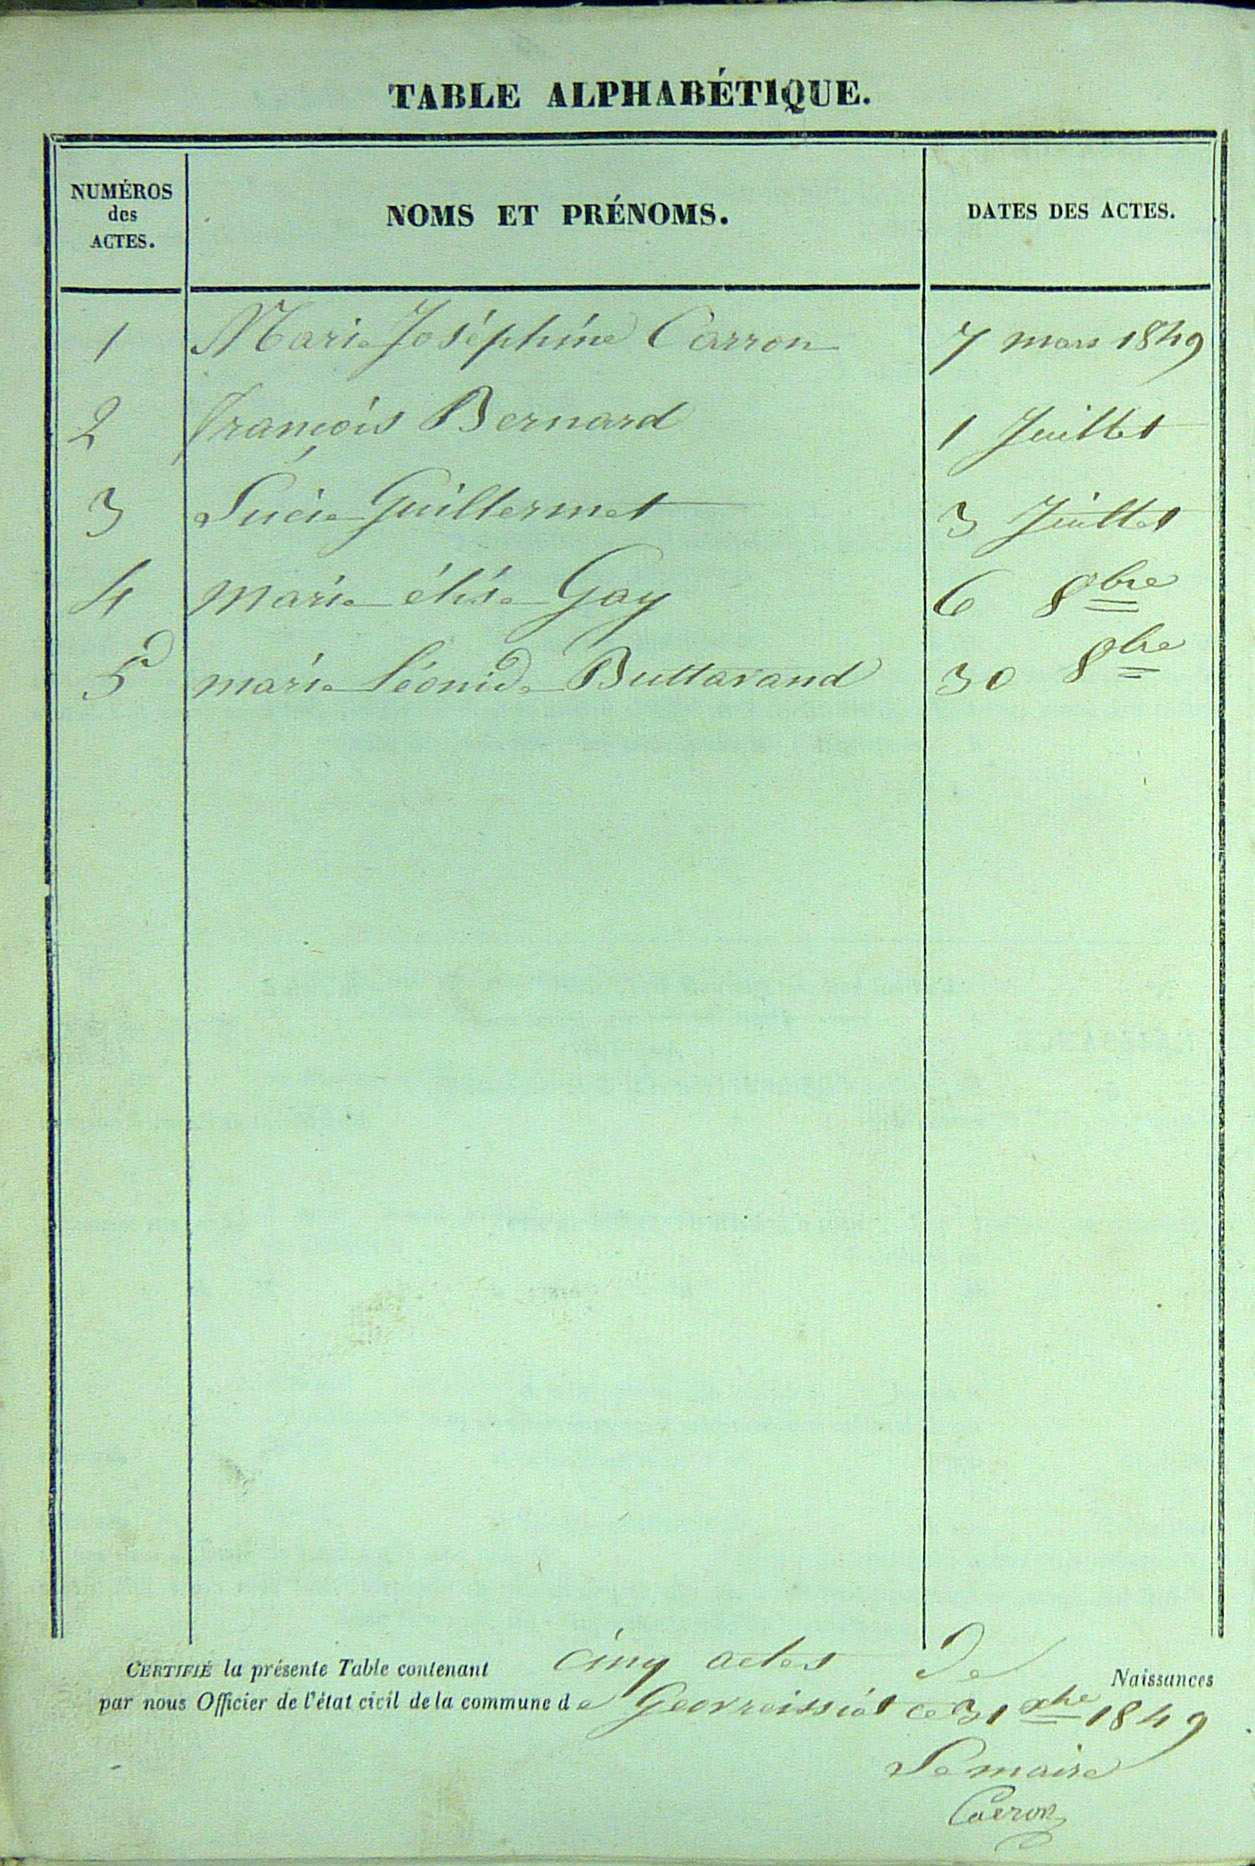 TABLE ALPHABÉTIQUE.
NUMÉROS
des
ACTES.
NOMS ET PRÉNOMS.
DATES DES ACTES.
1 Marie Joséphine Carron 7 mars 1849
2 françois Bernard 1 Juillet
3 Lucie Guillermet 3 Juillet
4 marie élise Gay 6 8bre
5 marie Léonide Buttavand 30 8bre
CERTIFIÉ la présente Table contenant cinq actes de Naissances
par nous Officier de l'état civil de la commune de Geovreissiat ce 31 xbre 1849
Le maire
Carron